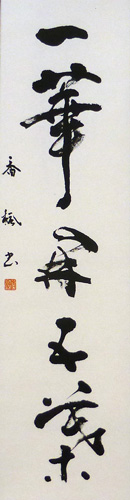 一華開五葉
香楓書